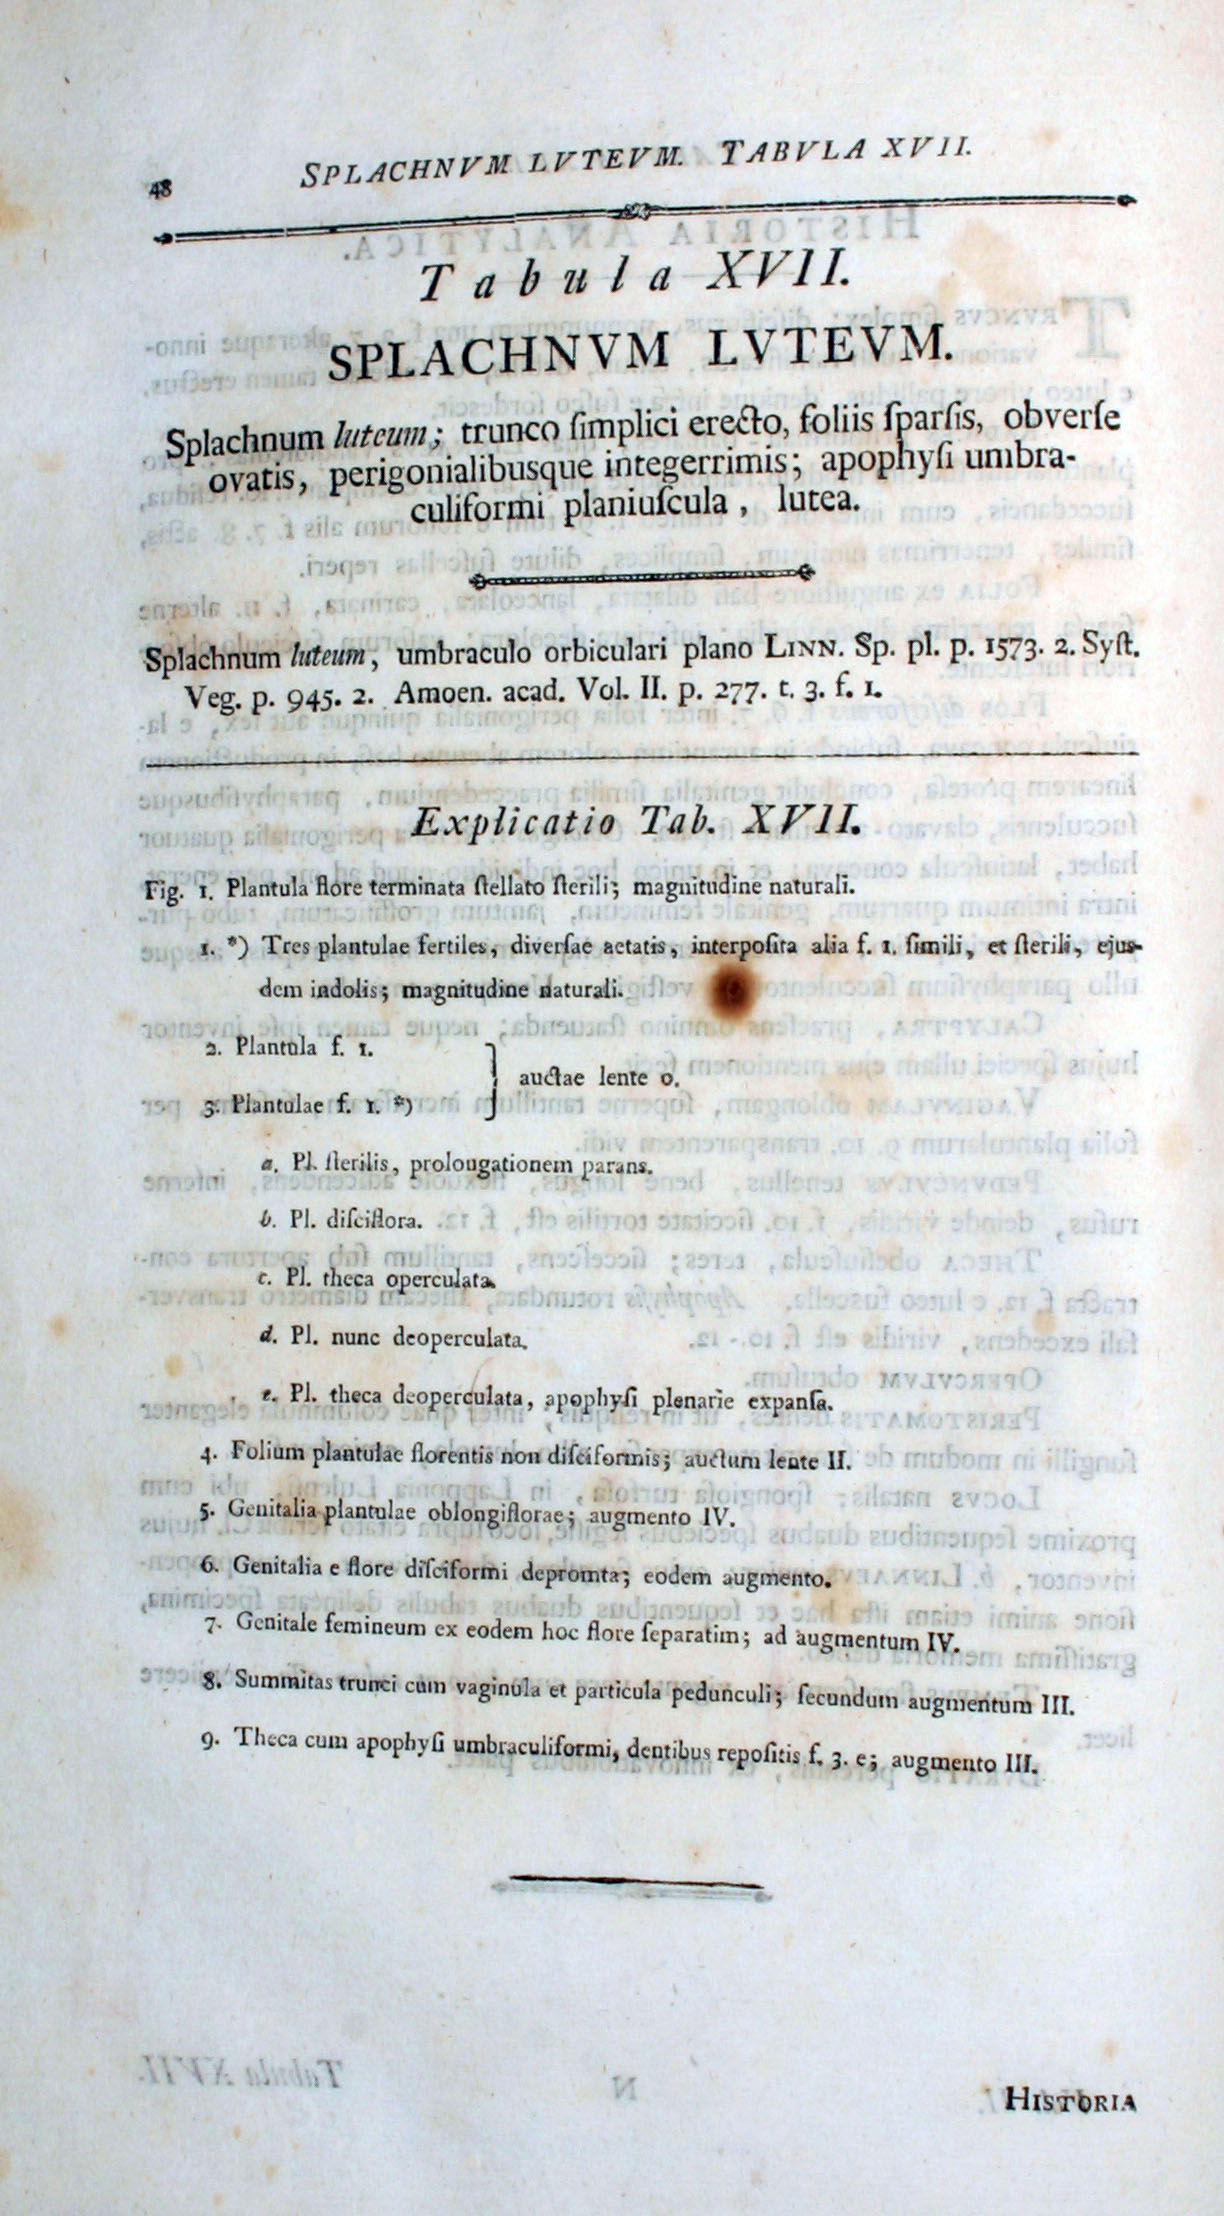 48
SPLACHNVM LVTEVM. TABVLA XVII.
Tabula XVII.
SPLACHNVM LVTEVM.
Splachnum luteum; trunco ſimplici erecto, foliis ſparſis, obverſe
ovatis, perigonialibusque integerrimis; apophyſi umbra-
culiformi planiuſcula, lutea.
Splachnum luteum, umbraculo orbiculari plano LINN. Sp. pl. p. 1573. 2. Syſt.
Veg. p. 945. 2. Amoen. acad. Vol. II. p. 277. t. 3. f. 1.
Explicatio Tab. XVII.
Fig. 1. Plantula flore terminata ſtellato ſterili; magnitudine naturali.
1. *) Tres plantulae fertiles, diverſae aetatis, interpoſita alia f. 1. ſimili, et ſterili, ejus-
dem indolis; magnitudine naturali.
2. Plantula f. 1.
} auctae lente 0.
3. Plantulae f. 1. *)
a. Pl. ſterilis, prolongationem parans.
b. Pl. diſciflora.
c. Pl. theca operculata.
d. Pl. nunc deoperculata.
e. Pl. theca deoperculata, apophyſi plenarie expanſa.
4. Folium plantulae florentis non diſciformis; auctum lente II.
5. Genitalia plantulae oblongiflorae; augmento IV.
6. Genitalia e flore diſciformi depromta; eodem augmento.
7. Genitale femineum ex eodem hoc flore ſeparatim; ad augmentum IV.
8. Summitas trunci cum vaginula et particula pedunculi; ſecundum augmentum III.
9. Theca cum apophyſi umbraculiformi, dentibus repoſitis f. 3. e; augmento III.
HISTORIA